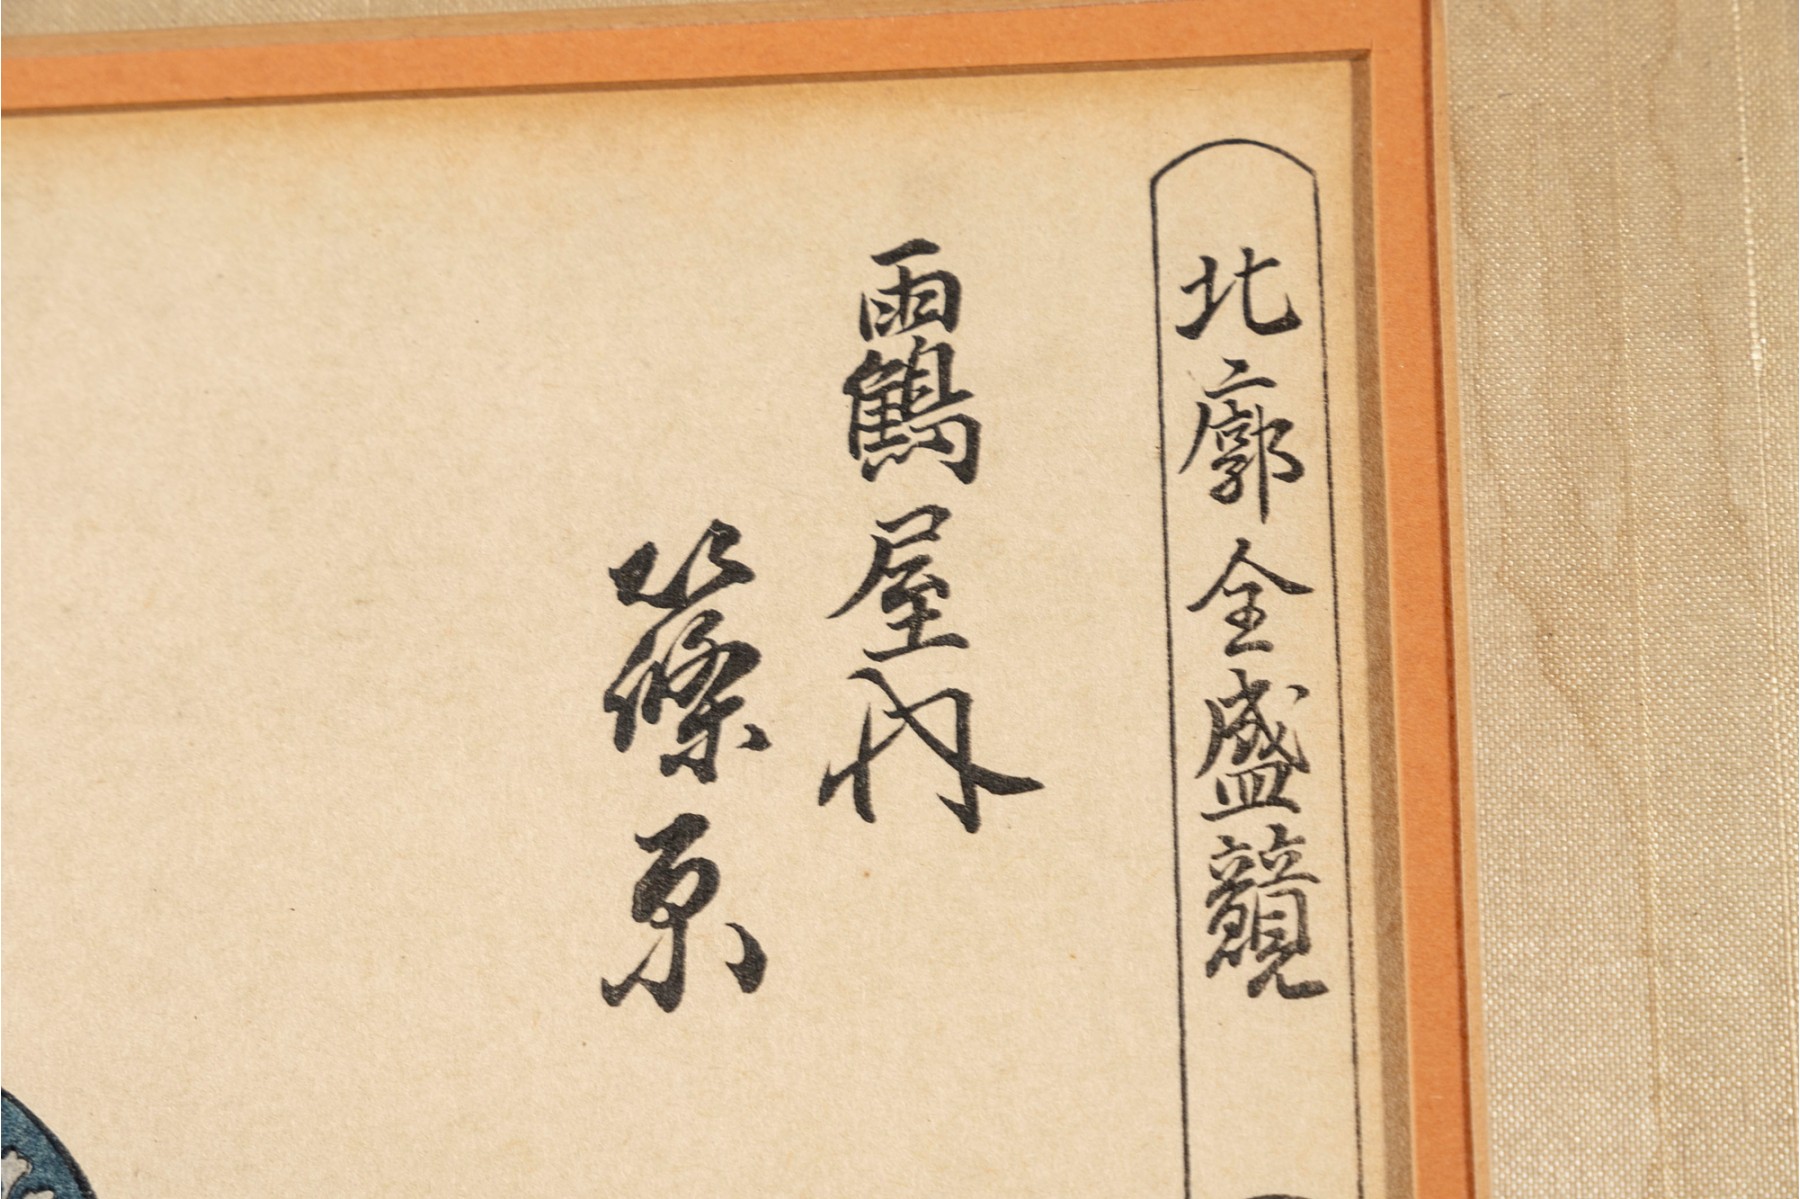 北廓全盛競
靏屋内
篠原